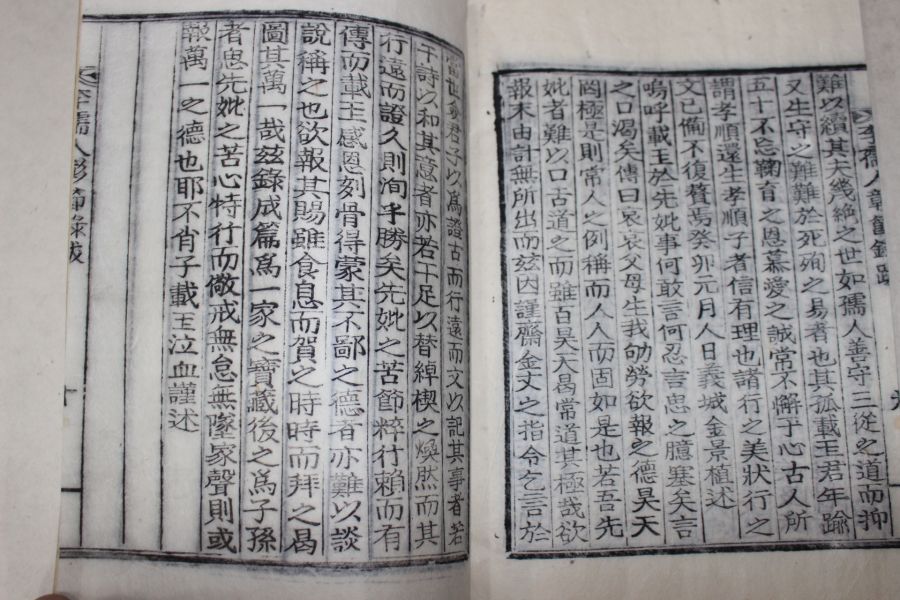 李孺人彰節錄跋
難以續其夫幾絶之世如孺人善守三從之道而抑
又生守之難難於死殉之易者也其孤載玉君年踰
五十不忘鞠育之恩慕愛之誠常不懈于心古人所
謂孝順還生孝順子者信有理也諸行之美狀行之
文已備不復贅焉癸卯元月人日義城金景植述
嗚呼載玉於先妣事何敢言何忍言思之臆塞矣言
之口渴矣傳曰哀哀父母生我劬勞欲報之德昊天
罔極是則常人之例稱而人人而固如是也若吾先
妣者難以口舌道之而雖百昊天曷常道其極哉欲
報末由計無所出而玆因謹齋金丈之指令乞言於
當世每君子以爲證古而行遠而文以記其事者若
干詩以和其意者亦若干足以替綽楔之煥然而其
行遠而證久則洵乎勝矣先妣之苦節粹行賴而有
傳而載玉感恩刻骨得蒙其不鄙之德者亦難以談
說稱之也欲報其賜雖食息而賀之時時而拜之曷
圖其萬一哉玆錄成篇爲一家之寶藏後之爲子孫
者思先妣之苦心特行而儆戒無怠無墜家聲則或
報萬一之德也耶不肖子載玉泣血謹述
李孺人彰節錄跋
十